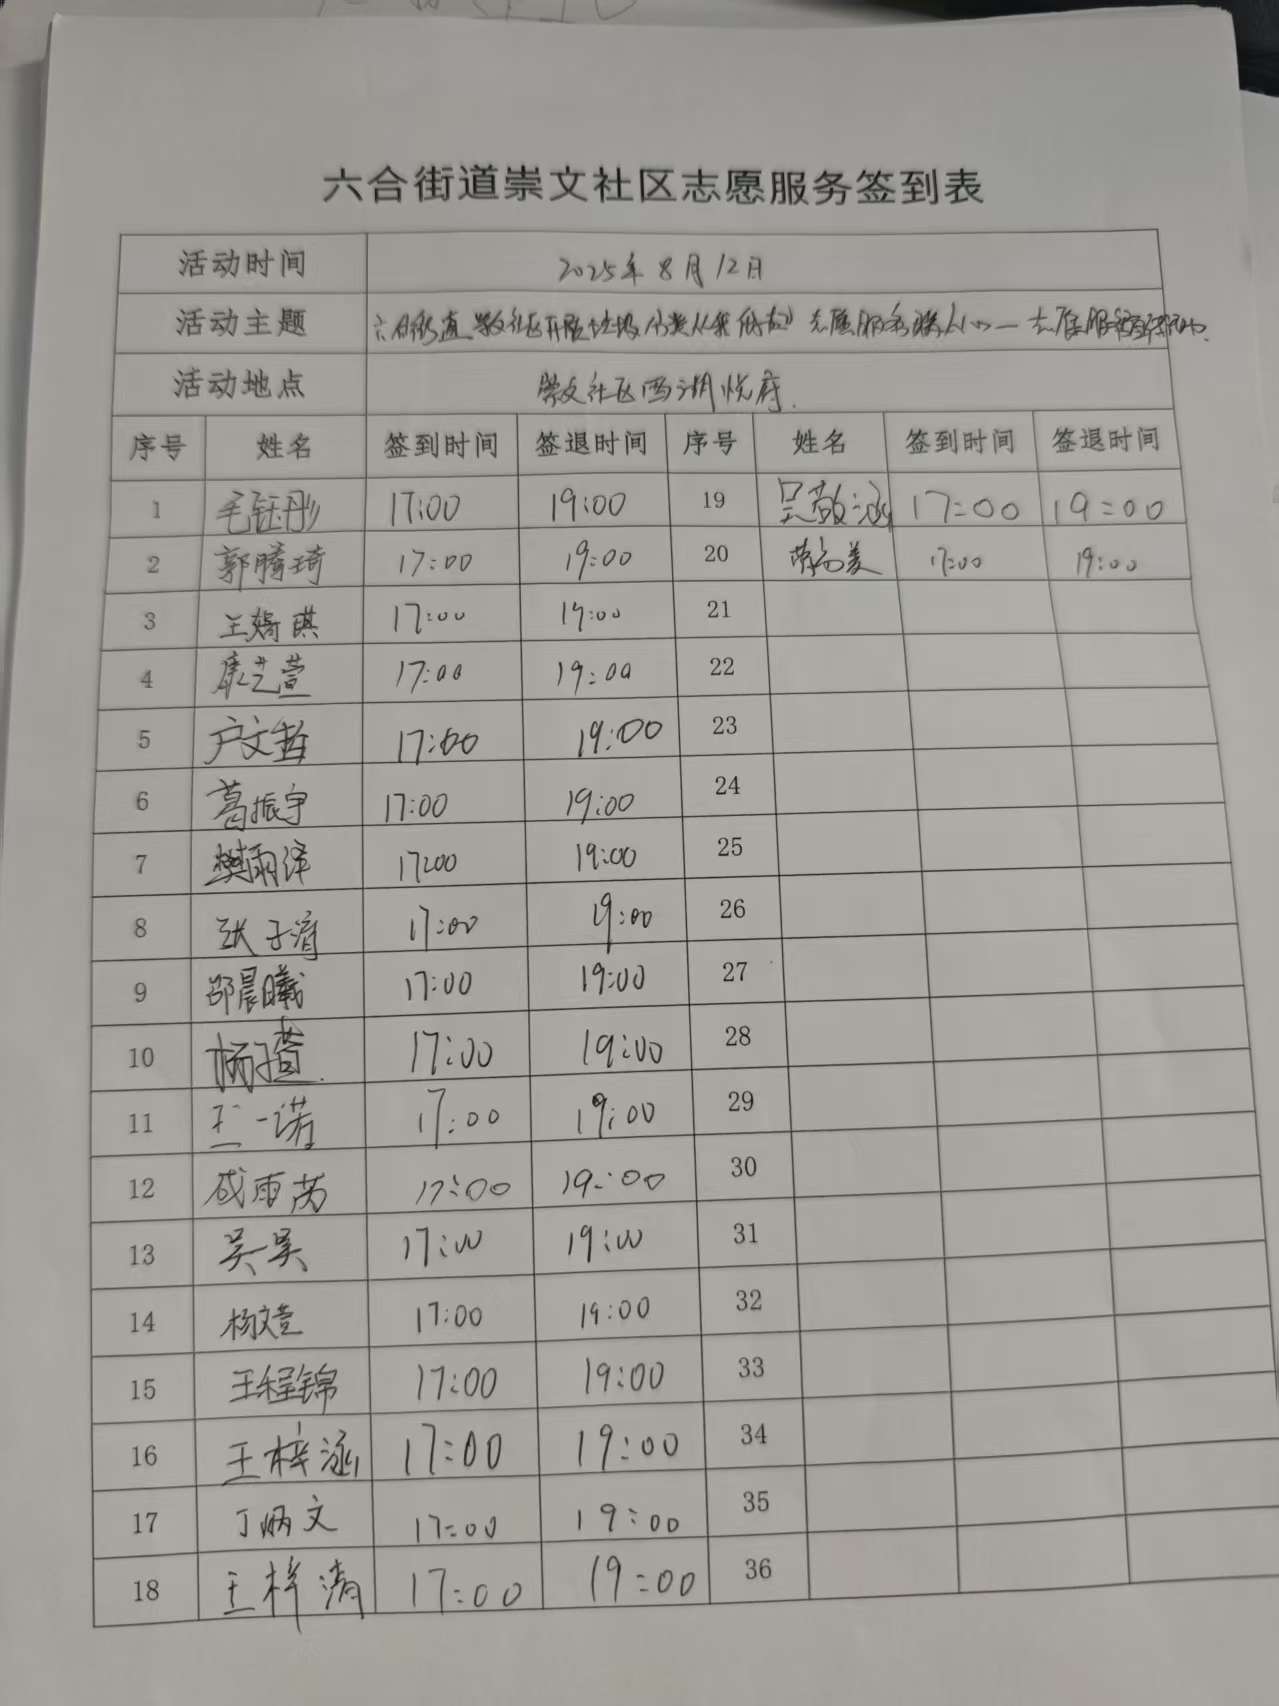 六合街道崇文社区志愿服务签到表
活动时间 2025年8月12日
活动主题 六合街道崇文社区开展垃圾分类从我 志愿服务 人心一志愿服务
活动地点 崇文社区西湖悦府.
序号 姓名 签到时间 签退时间 序号 姓名 签到时间 签退时间
1 毛钰彤 17:00 19:00 19 吴敬涵 17:00 19:00
2 郭腾琦 17:00 19:00 20 17:00 19:00
3 王婍琪 17:00 19:00 21
4 康芝萱 17:00 19:00 22
5 户文哲 17:00 19:00 23
6 葛振宇 17:00 19:00 24
7 樊雨泽 17:00 19:00 25
8 张子清 17:00 19:00 26
9 邵晨曦 17:00 19:00 27
10 杨子萱. 17:00 19:00 28
11 王一诺 17:00 19:00 29
12 戚雨芮 17:00 19:00 30
13 吴昊 17:00 19:00 31
14 杨文萱 17:00 19:00 32
15 王程锦 17:00 19:00 33
16 王梓涵 17:00 19:00 34
17 丁炳文 17:00 19:00 35
18 王梓清 17:00 19:00 36